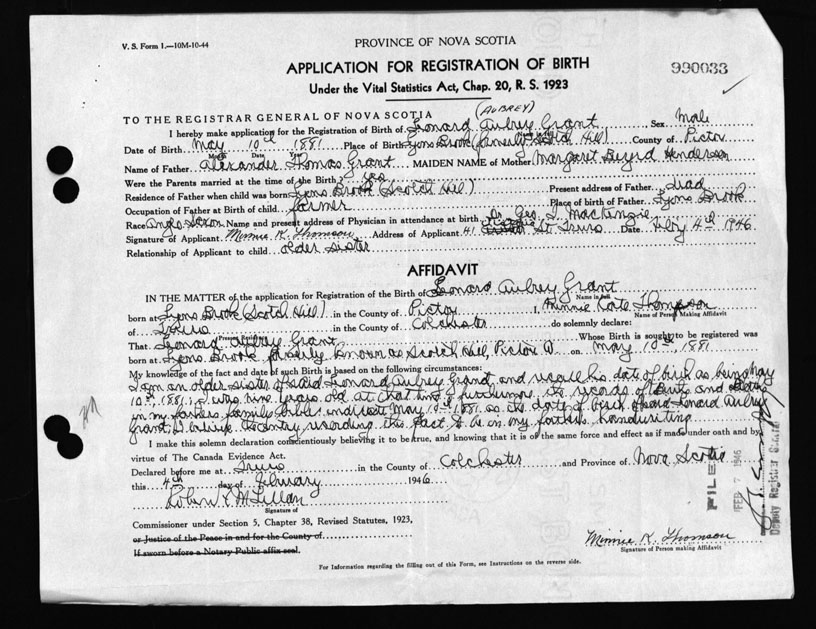 V. S. Form 1.—10M-10-44
PROVINCE OF NOVA SCOTIA
APPLICATION FOR REGISTRATION OF BIRTH
990033
Under the Vital Statistics Act, Chap. 20, R. S. 1923
(AUBREY)
TO THE REGISTRAR GENERAL OF NOVA SCOTIA
I hereby make application for the Registration of Birth of Leonard Aubrey Grant Sex Male
Name in full
Date of Birth May 10th 1881 Place of Birth Lyons Brook (formerly Scotch Hill) County of Pictou
Month Date Year
Name of Father Alexander Thomas Grant MAIDEN NAME of Mother Margaret Henderson
Were the Parents married at the time of the Birth? yes
Residence of Father when child was born Lyons Brook (Scotch Hill) Present address of Father Dead
Occupation of Father at Birth of child farmer Place of birth of Father Lyons Brook
Race Anglo-Saxon Name and present address of Physician in attendance at birth Dr. Geo. I. MacKenzie
Signature of Applicant Minnie K. Thomson Address of Applicant 41 St Truro Date Feby 4th 1946
Relationship of Applicant to child older sister
AFFIDAVIT
IN THE MATTER of the application for Registration of the Birth of Leonard Aubrey Grant
Name in full
born at Lyons Brook (Scotch Hill) in the County of Pictou I, Minnie Kate Thompson
Name of Person Making Affidavit
of Truro in the County of Colchester do solemnly declare:
That Leonard Aubrey Grant Whose Birth is sought to be registered was
born at Lyons Brook formerly known as Scotch Hill, Pictou Co on May 10th 1881
My knowledge of the fact and date of such Birth is based on the following circumstances:
I am an older sister of said Leonard Aubrey Grant and recall his date of birth as being May
10th 1881; I was nine years old at that time; furthermore the records of Births and Deaths
in my fathers family bible indicate May 10th 1881 as the date of birth of said Leonard Aubrey
Grant; I believe the entry recording this fact to be in my fathers handwriting.
I make this solemn declaration conscientiously believing it to be true, and knowing that it is of the same force and effect as if made under oath and by
virtue of The Canada Evidence Act.
Declared before me at Truro in the County of Colchester and Province of Nova Scotia
this 4th day of February 1946
Signature of
Commissioner under Section 5, Chapter 38, Revised Statutes, 1923,
or Justice of the Peace in and for the County of
If sworn before a Notary Public affix seal.
Minnie K. Thomson
Signature of Person making Affidavit
For Information regarding the filling out of this Form, see Instructions on the reverse side.
FILED
FEB 7 1946
Deputy Registrar General